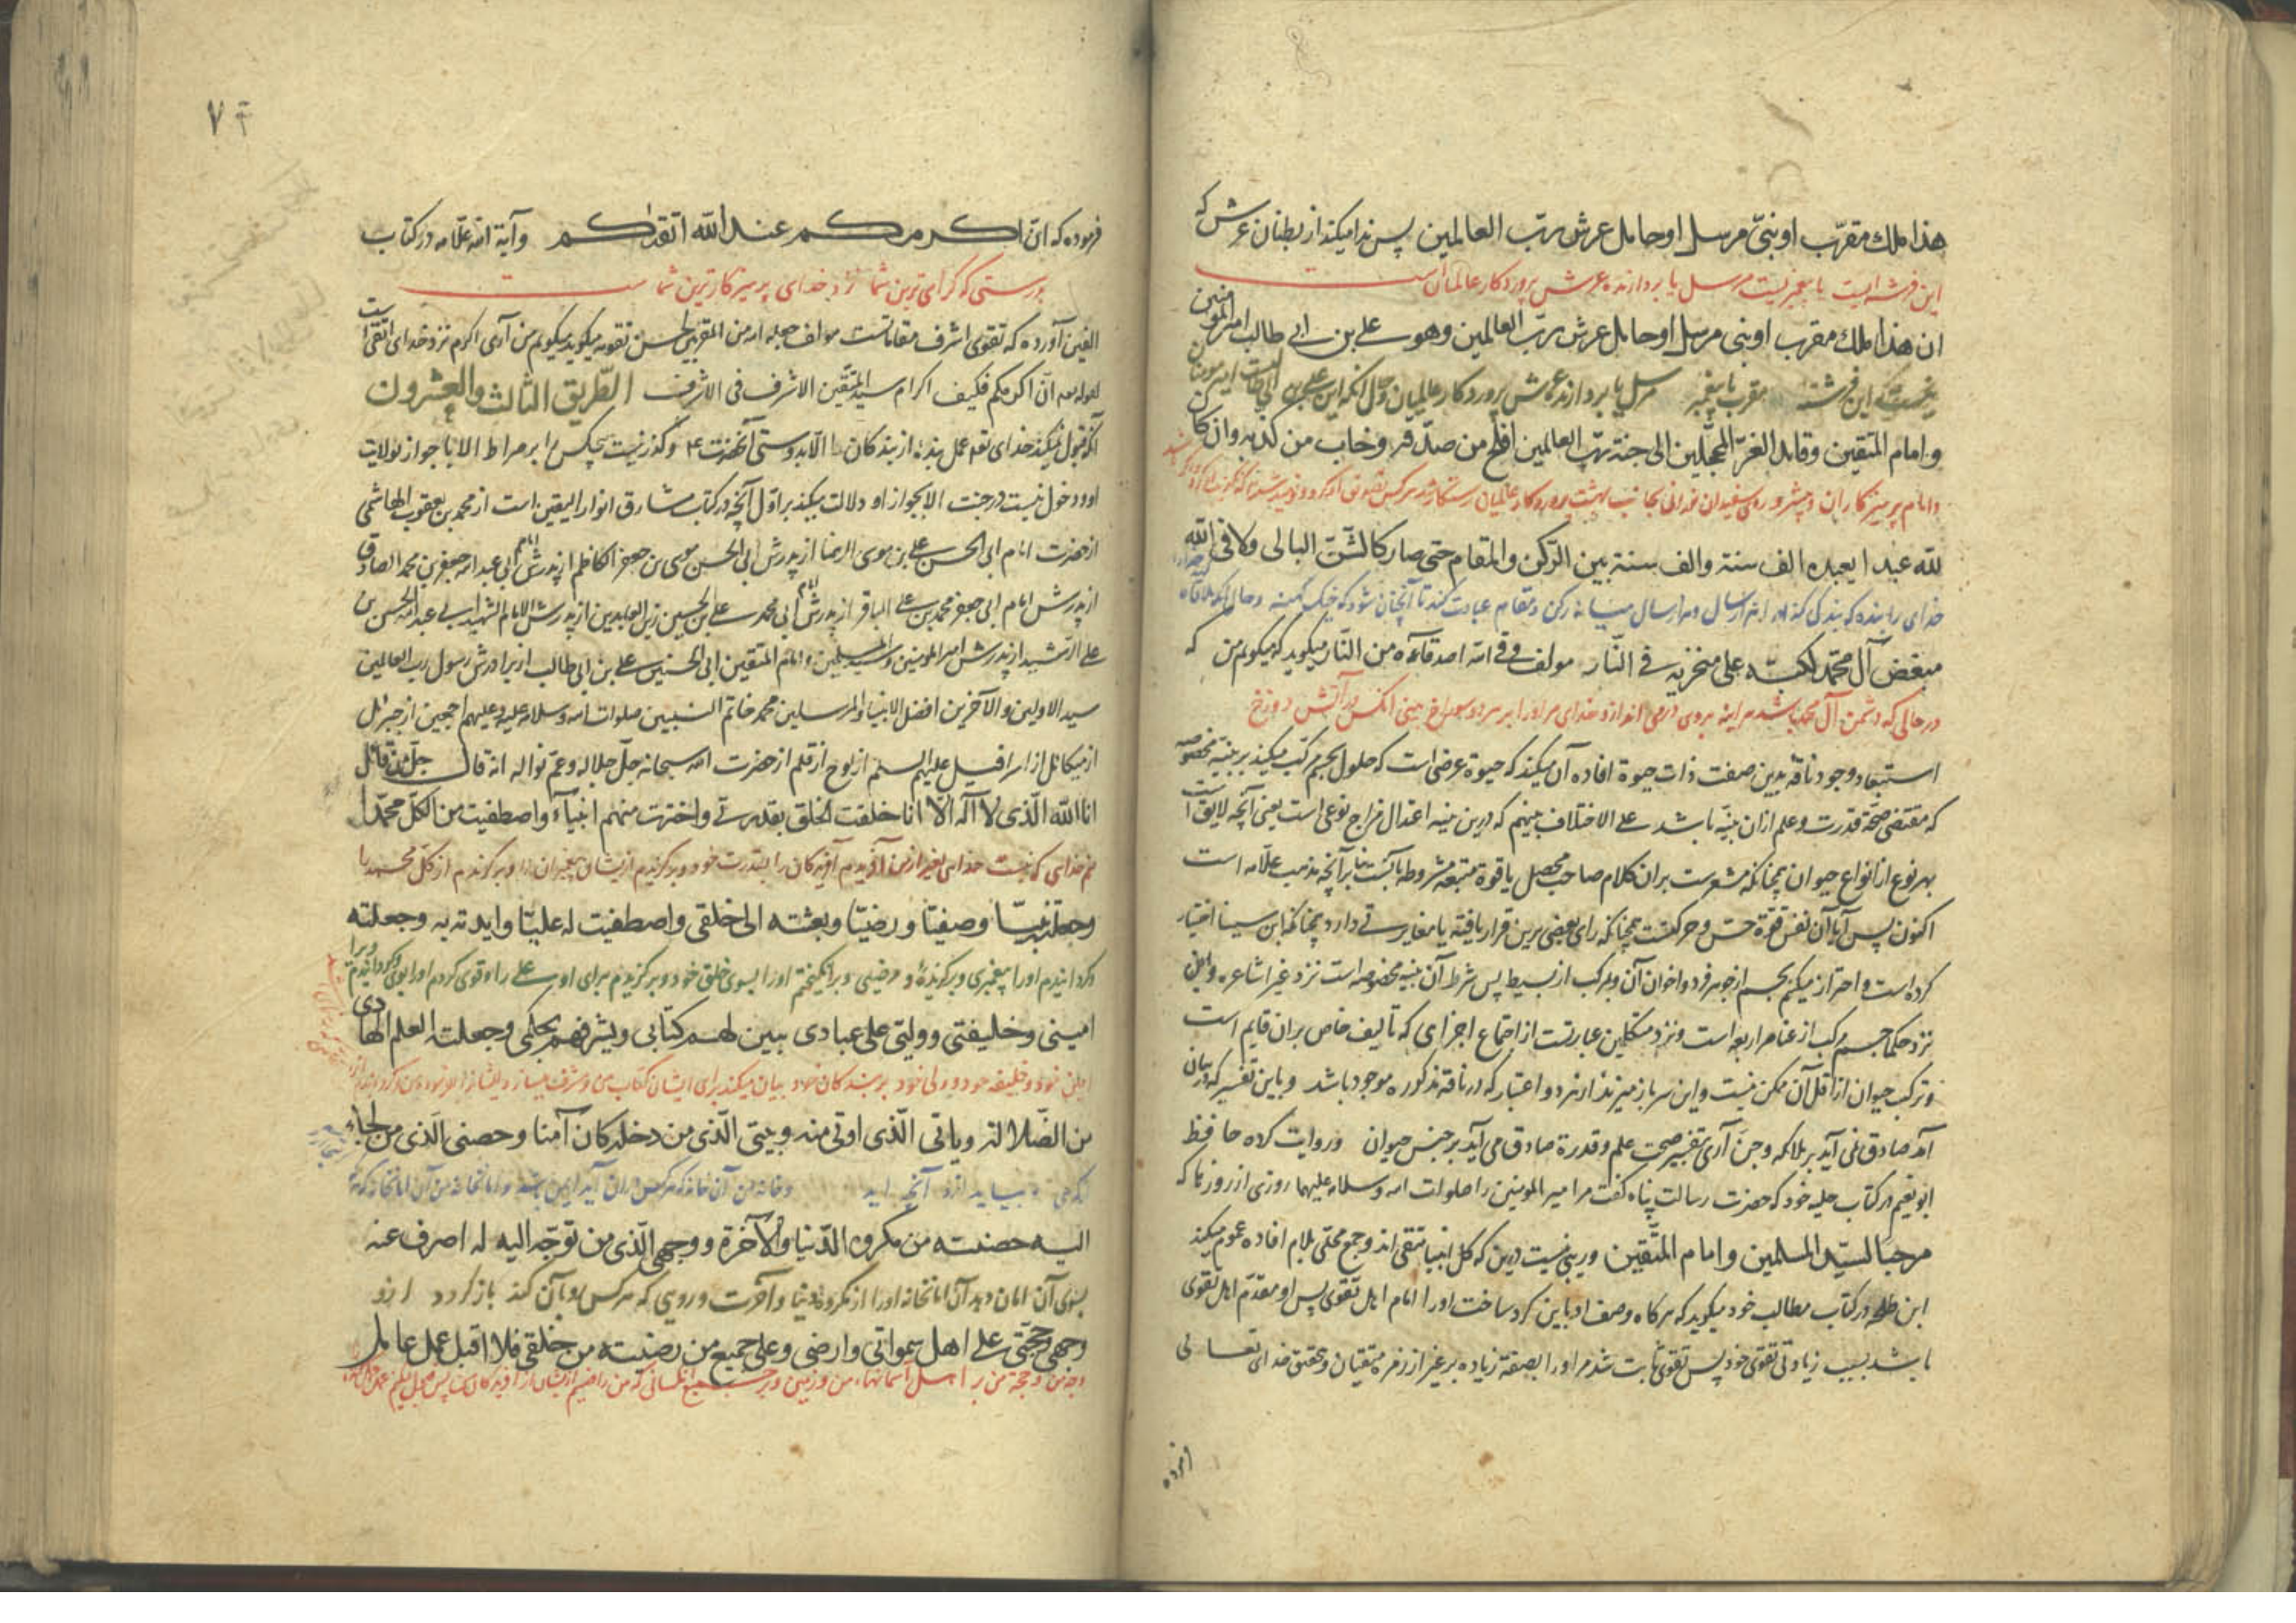 هذا ملك مقرّب او نبیّ مرسل او حامل عرش ربّ العالمین پس ندا میکند از بطنان عرش که
این فرشته ایست یا پیغمبریست مرسل یا بردارنده عرش پروردکار عالمیان است
ان هذا ملك مقرب او نبی مرسل او حامل عرش ربّ العالمین وهو علی بن ابی طالب امیر المومنین
این فرشته مقرب یا پیغمبر مرسل یا بردارنده عرش پروردکار عالمیان
و امام المتقین وقائد الغرّ المحجّلین الی جنة ربّ العالمین افلح من صدّقه وخاب من کذبه وان کان
وامام پرهیزکاران و پیشرو روی سفیدان نورانی بجانب بهشت پروردکار عالمیان
للّه عبدا یعبده الف سنة والف سنة بین الرّکن والمقام حتی صار کالشّنّ البالی ولاقی اللّه
خدای را بنده که بندکی کند هزار سال و هزار سال میانه رکن ومقام عبادت کند تا آنچنان شود که خیک کهنه
مبغض آل محمّد لکبّه علی منخریه فی النّار مولف وفی الله اصدقاءه من النّار میکوید که میکویم من که
در حالی که دشمن آل محمد باشد هر اینه بروی در می اندازد خدای در آتش دوزخ
استبعاد وجود ناقه بدین صفت ذات حیوة افاده آن میکند که حیوة عرضی است که حلول بجسم مرکب میکند بر بنیه مخصوصه
که مقتضی صحّة قدرت وعلم از ان بنیّه باشد علی الاختلاف بینهم که درین بنیه اعتدال مزاج نوعی است یعنی آنچه لایق است
بهر نوع از انواع حیوان همچنانکه مشعرست بران کلام صاحب محصل یا قوة متبعه مشروطه بآنست بنا بر آنچه مذهب علّامه است
اکنون پس آیا آن نفس قوّة حس وحرکتست همچنانکه رای بعضی برین قرار یافته یا مغایرتی دارد همچنانکه ابن سینا اختیار
کرده است واحتراز میکنم بجسم از جوهر فرد واخوان آن وبمرکب از بسیط پس شرط آن بنیه مخصوصه است نزد غیر اشاعره واین
نزد حکما جسم مرکب از عناصر اربعه است ونزد متکلمین عبارتست از اجتماع اجزای که تالیف خاص بران قایم است
وترکب حیوان از اقل آن ممکن نیست واین سر باز میزند از هر دو اعتبار که در ناقه مذکوره موجود باشد وباین تفسیر که در بیان
آمد صادق نمی آید بر ملائکه وجن آری بتفسیر صحت علم وقدرة صادق می آید بر جنس حیوان وروایت کرده حافظ
ابو نعیم در کتاب حلیه خود که حضرت رسالت پناه کفت مر امیر المومنین را صلوات الله وسلامه علیهما روزی از روزها که
مرحبا لسیّد المسلمین وامام المتّقین وریبی نیست درین که کل انبیا متقی اند وجمع محلّی بلام افاده عموم میکند
ابن طلحه در کتاب مطالب خود میکوید که هرکاه وصف او باین کرد ساخت او را امام اهل تقوی پس او مقدّم اهل تقوی
باشد بسبب زیادتی تقوی خود پس تقوی ثابت شد مر او را بصفة زیاده بر غیر از زمره متقیان وبتحقیق خدای تعالی
فرموده
٧٦
فرموده که انّ اکرمکم عند الله اتقدیکم وآیة الله علّامه در کتاب
بدرستی که کرامی ترین شما نزد خدای پرهیزکارترین شماست
الفین آورده که تقوی اشرف مقاماتست مولف جعله الله من المقربین بحسن تقویه میکوید میکویم من آری اکرم نزد خدای اتقی است
لقوله تعه انّ اکرمکم فکیف اکرام سید المتّقین الاشرف فی الاشرف الطّریق الثّالث والعشرون
آنکه قبول نمیکند خدای تعه عمل بنده از بندکان را الّا بدوستی آنحضرت ع وکذر نیست هیچکس را بر صراط الا با جواز بولایت
او ودخول نیست در جنت الا بجواز او ودلالت میکند بر اول آنچه در کتاب مشارق انوار الیقین است از محمد بن یعقوب الهاشمی
از حضرت امام ابی الحسن علی بن موسی الرضا از پدرش ابی الحسن موسی بن جعفر الکاظم از پدرش امام ابی عبد الله جعفر بن محمد الصادق
از پدرش امام ابی جعفر محمد بن علی الباقر از پدرش امام ابی محمد علی بن الحسین زین العابدین از پدرش الامام الشهید ابی عبد الله الحسین بن
علی الرّشید از پدرش امیر المومنین وسید المسلمین وامام المتقین ابی الحسنین علی بن ابی طالب از برادرش رسول رب العالمین
سید الاولین والآخرین افضل الانبیا والمرسلین محمد خاتم النبیین صلوات الله وسلامه علیه وعلیهم اجمعین از جبرئل
از میکائل از اسرافیل علیهم السلم از لوح از قلم از حضرت الله سبحانه جلّ جلاله وعمّ نواله انه قال جلّ من قائل
انا اللّه الّذی لا اله الّا انا خلقت الخلق بقدرتی واخترت منهم انبیآء واصطفیت من الکلّ محمّدا
منم خدای که نیست خدای بغیر از من آفریدم آفریدکان را بقدرت خود وبرکزیدم از ایشان پیغمبران را وبرکزیدم از کل محمد را
وجعلته نبیّا وصفیّا ورضیّا وبعثته الی خلقی واصطفیت له علیّا وایدته به وجعلته
وکردانیدم او را پیغمبری وبرکزیده ومرضی وبرانکیختم او را بسوی خلق خود وبرکزیدم برای او علی را وقوی کردم او را بوی وکردانیدم ویرا
امینی وخلیفتی وولیّی علی عبادی یبین لهم کتابی ویشرفهم بحکمی وجعلته العلم الهادی
امین خود وخلیفه خود وولی خود بر بندکان خود بیان میکند برای ایشان کتاب من
من الضّلالة وبابی الّذی اوتی منه وبیتی الّذی من دخله کان آمنا وحصنی الّذی من لجاء
وخانه من آن خانه که هر کس در ان آید ایمن باشد
الیه حصنته من مکروه الدّنیا والآخرة ووجهی الّذی من توجّه الیه لم اصرف عنه
بسوی آن امان دهد آن امانخانه او را از مکروه دنیا وآخرت وروی که هر کس رو بآن کند باز نکردد ازو
وجهی وحجّتی علی اهل سمواتی وارضی وعلی جمیع من رضیته من خلقی فلا اقبل عمل عامل
وجه من وحجة من بر اهل آسمانهای من وزمین